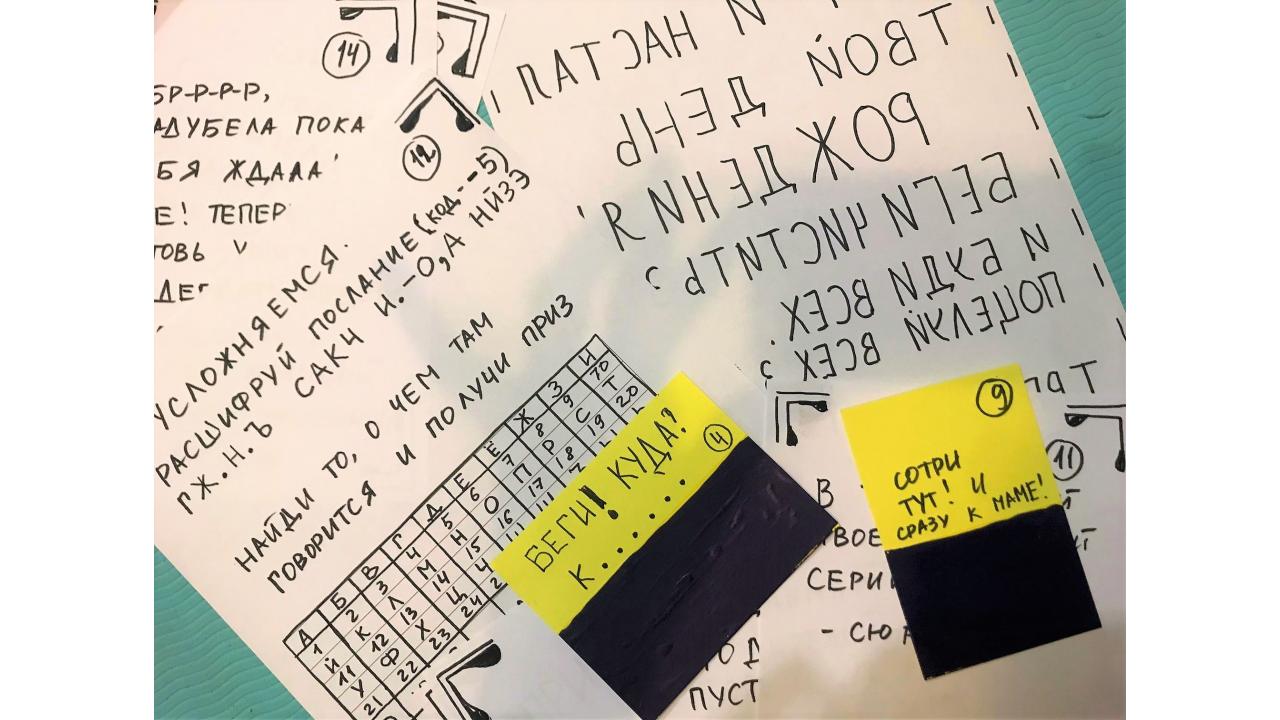 14
БР-Р-Р-Р,
АДУБЕЛА ПОКА
БЯ ЖДАЛА
Е! ТЕПЕР
ТОВЬ
12
УСЛОЖНЯЕМСЯ.
РАСШИФРУЙ ПОСЛАНИЕ (КОД - - 5)
ГЖ.Н.Ъ САКЧ И.-О,А НЙЗЭ
НАЙДИ ТО, О ЧЕМ ТАМ
ГОВОРИТСЯ И ПОЛУЧИ ПРИЗ
А Б В Г Д Е Ё Ж З И
1 2 3 4 5 6 7 8 9 10
Й К Л М Н О П Р С Т
11 12 13 14 15 16 17 18 19 20
У Ф Х Ц Ч
21 22 23 24 2
И НАСТАЛ
ТВОЙ ДЕНЬ
РОЖДЕНИЯ,
БЕГИ ЧИСТИТЬ
И БУДИ ВСЕХ.
ПОЦЕЛУЙ ВСЕХ
БЕГИ! КУДА?
К......
4
9
СОТРИ
ТУТ! И
СРАЗУ К МАМЕ!
11
В
ТВОЕ
СЕРИ
- СЮ
ОД
ПУСТ